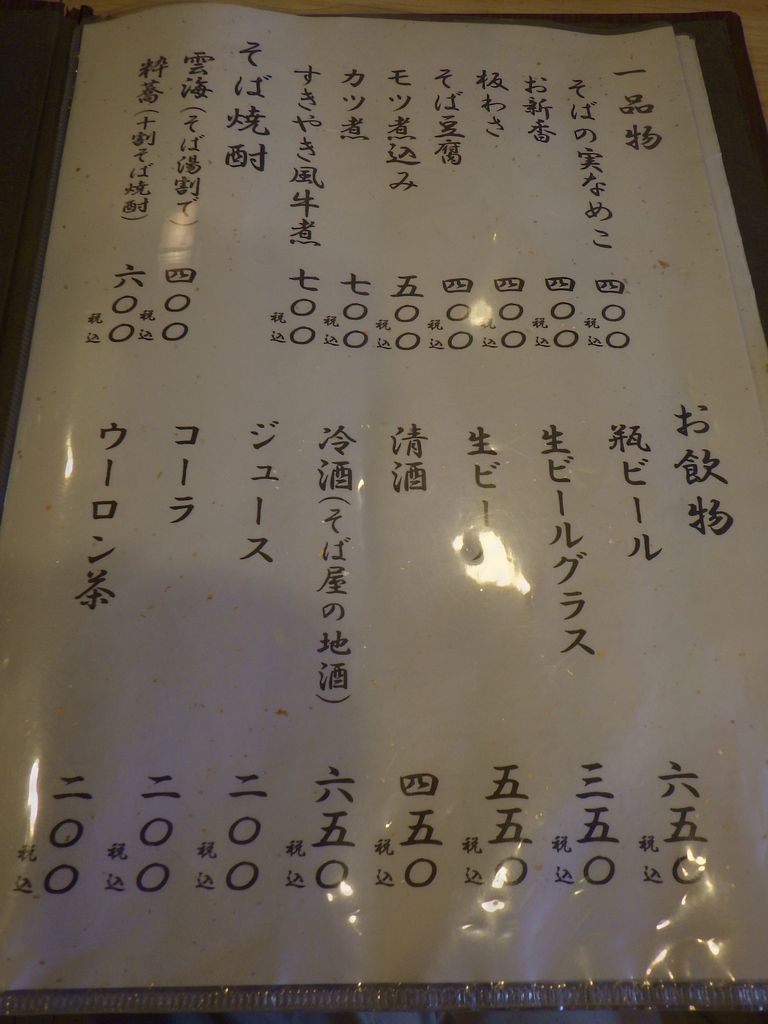 一品物
そばの実なめこ 四〇〇 税込
お新香 四〇〇 税込
板わさ 四〇〇 税込
そば豆腐 四〇〇 税込
モツ煮込み 五〇〇 税込
カツ煮 七〇〇 税込
すきやき風牛煮 七〇〇 税込
そば焼酎
雲海(そば湯割で) 四〇〇 税込
粋蕎(十割そば焼酎) 六〇〇 税込
お飲物
瓶ビール 六五〇 税込
生ビールグラス 三五〇 税込
生ビール 五五〇 税込
清酒 四五〇 税込
冷酒(そば屋の地酒) 六五〇 税込
ジュース 二〇〇 税込
コーラ 二〇〇 税込
ウーロン茶 二〇〇 税込